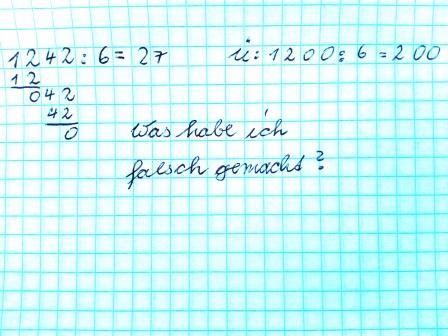 1242 : 6 = 27
ü : 1200 : 6 = 200
12
042
42
0
Was habe ich
falsch gemacht ?